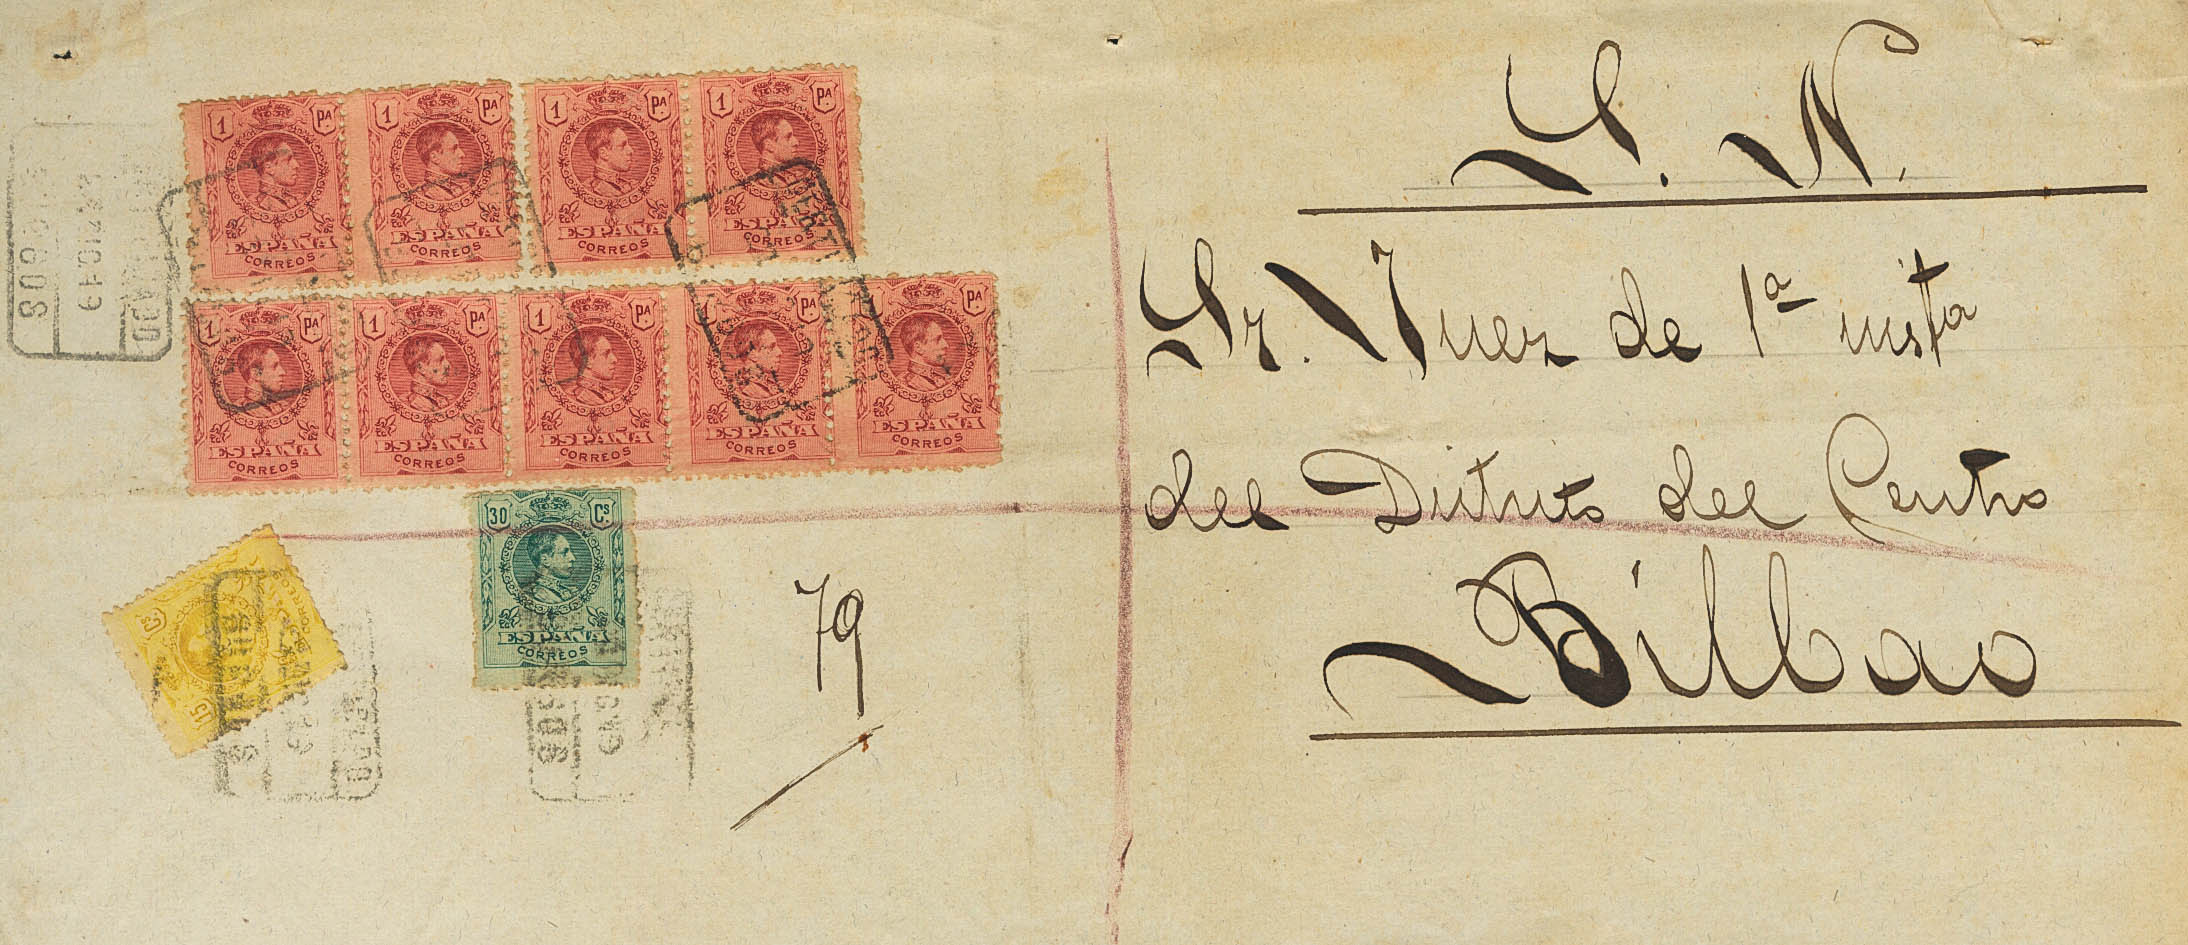 S. N.
Sr. Juez de 1ª insta
del Distrito del Centro
Bilbao
79
1 PA
ESPAÑA
CORREOS
1 PA
ESPAÑA
CORREOS
1 PA
ESPAÑA
CORREOS
1 PA
ESPAÑA
CORREOS
1 PA
ESPAÑA
CORREOS
1 PA
ESPAÑA
CORREOS
1 PA
ESPAÑA
CORREOS
1 PA
ESPAÑA
CORREOS
1 PA
ESPAÑA
CORREOS
30 Cs.
ESPAÑA
CORREOS
15 Cs
CORREOS